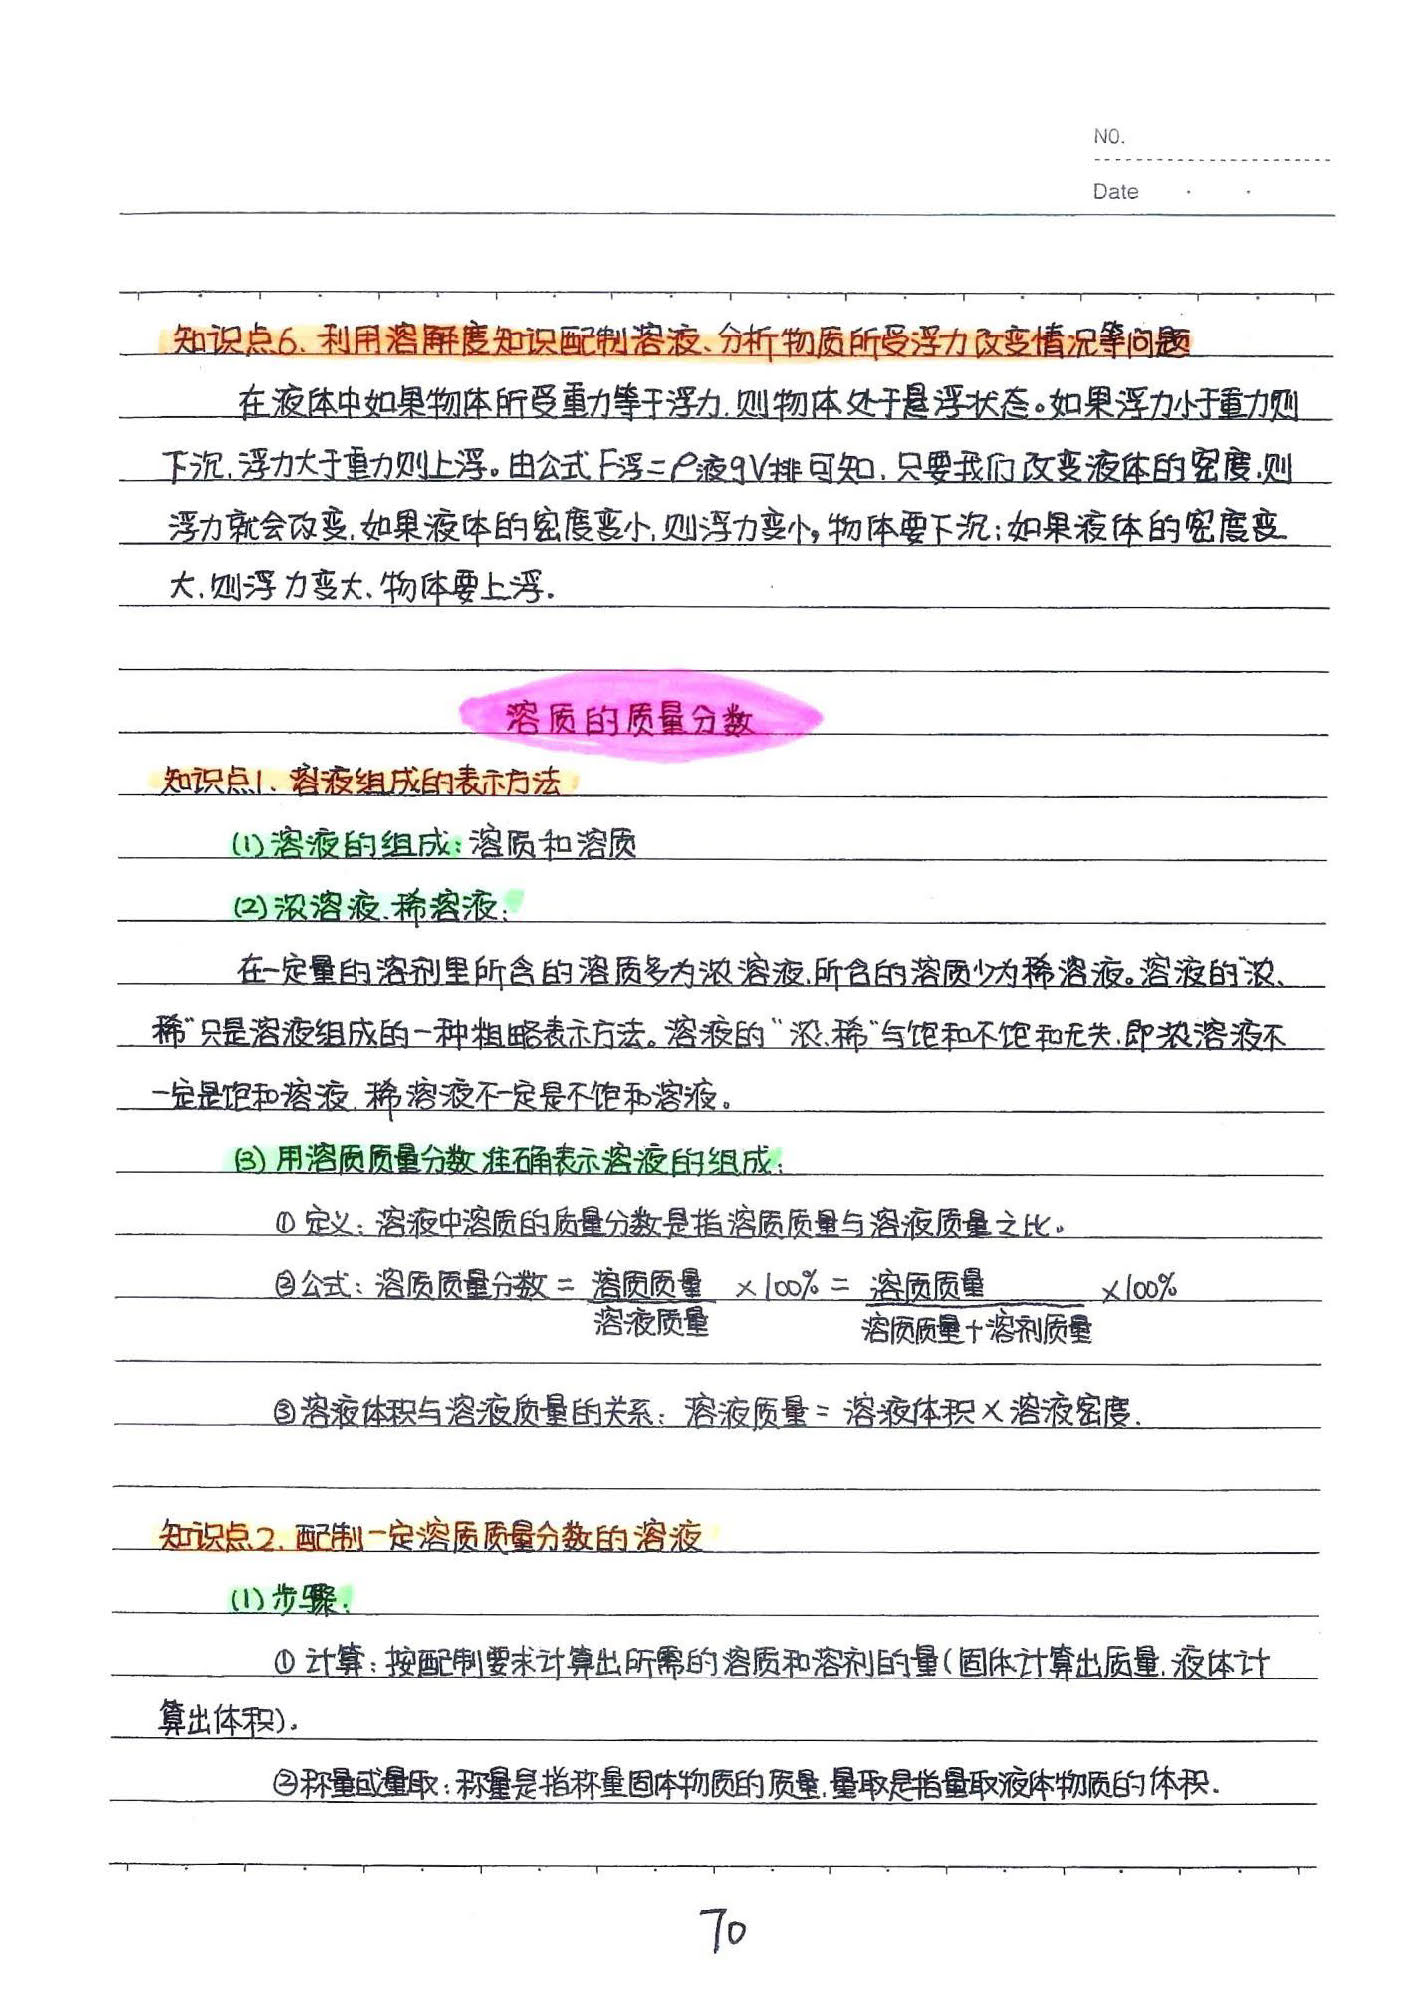 NO.
Date
知识点6、利用溶解度知识配制溶液、分析物质所受浮力改变情况等问题
在液体中如果物体所受重力等于浮力,则物体处于悬浮状态。如果浮力小于重力则
下沉,浮力大于重力则上浮。由公式F浮=ρ液gV排可知,只要我们改变液体的密度,则
浮力就会改变,如果液体的密度变小,则浮力变小,物体要下沉;如果液体的密度变
大,则浮力变大、物体要上浮.
溶质的质量分数
知识点1、溶液组成的表示方法
(1)溶液的组成:溶质和溶质
(2)浓溶液、稀溶液:
在一定量的溶剂里所含的溶质多为浓溶液,所含的溶质少为稀溶液。溶液的“浓、
稀”只是溶液组成的一种粗略表示方法。溶液的“浓、稀”与饱和不饱和无失,即浓溶液不
一定是饱和溶液,稀溶液不一定是不饱和溶液。
(3)用溶质质量分数准确表示溶液的组成:
①定义:溶液中溶质的质量分数是指溶质质量与溶液质量之比。
②公式:溶质质量分数= 溶质质量 ×100%= 溶质质量 ×100%
溶液质量 溶质质量+溶剂质量
③溶液体积与溶液质量的关系:溶液质量=溶液体积×溶液密度.
知识点2、配制一定溶质质量分数的溶液
(1)步骤:
①计算:按配制要求计算出所需的溶质和溶剂的量(固体计算出质量,液体计
算出体积)。
②称量或量取:称量是指称量固体物质的质量,量取是指量取液体物质的体积.
70